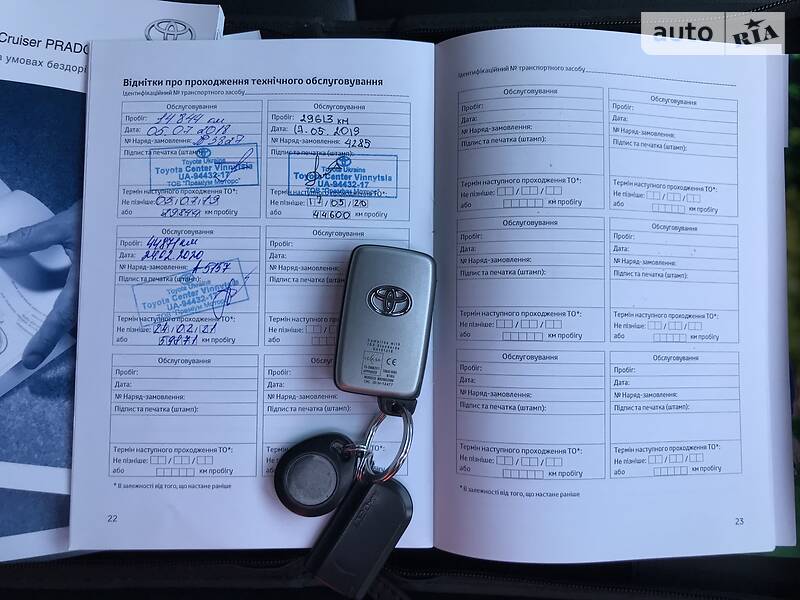 Cruiser PRADO
а умовах бездорі
auto RIA
Відмітки про проходження технічного обслуговування
Ідентифікаційний № транспортного засобу
Обслуговування
Пробіг: 14844 км
Дата: 05.07.2018
№ Наряд-замовлення:
Підпис та печатка (штамп):
Toyota Ukraine
Toyota Center Vinnytsia
UA-94432-17
ТОВ "Преміум Моторс"
Термін наступного проходження ТО*:
Не пізніше: 05.07.19
або 29844 км пробігу
Обслуговування
Пробіг: 29613 км
Дата: 17.05.2019
№ Наряд-замовлення: 4285
Підпис та печатка (штамп):
Toyota Ukraine
Toyota Center Vinnytsia
UA-94432-17
ТОВ "Преміум Моторс"
Термін наступного проходження ТО*:
Не пізніше: 17/05/20
або 44600 км пробігу
Обслуговування
Пробіг: 44871 км
Дата: 24.02.2020
№ Наряд-замовлення: А5157
Підпис та печатка (штамп):
Toyota Ukraine
Toyota Center Vinnytsia
UA-94432-17
ТОВ "Преміум Моторс"
Термін наступного проходження ТО*:
Не пізніше: 24.02.21
або 59871 км пробігу
Обслуговування
Пробіг:
Дата:
№ Наряд-замовлення:
Підпис та печатка
Термін наступного
Не пізніше:
або
Обслуговування
Пробіг:
Дата:
№ Наряд-замовлення:
Підпис та печатка (штамп):
Термін наступного проходження ТО*:
Не пізніше:
або км пробігу
Пробіг:
Дата:
№ Наряд-замовлення:
Підпис та печатка (штамп):
Термін
Не пізніше:
або
* В залежності від того, що настане раніше
22
Ідентифікаційний № транспортного засобу
Обслуговування
Пробіг:
Дата:
№ Наряд-замовлення:
Підпис та печатка (штамп):
Термін наступного проходження ТО*:
Не пізніше:
або км пробігу
Обслуговування
Пробіг:
Дата:
№ Наряд-замовлення:
Підпис та печатка (штамп):
Термін наступного проходження ТО*:
Не пізніше:
або км пробігу
Обслуговування
Пробіг:
Дата:
№ Наряд-замовлення:
Підпис та печатка (штамп):
Термін наступного проходження ТО*:
Не пізніше:
або км пробігу
Обслуговування
Пробіг:
Дата:
№ Наряд-замовлення:
Підпис та печатка (штамп):
Термін наступного проходження ТО*:
Не пізніше:
або км пробігу
Обслуговування
Пробіг:
Дата:
№ Наряд-замовлення:
Підпис та печатка (штамп):
Термін наступного проходження ТО*:
Не пізніше:
або км пробігу
Обслуговування
Пробіг:
Дата:
№ Наряд-замовлення:
Підпис та печатка (штамп):
Термін наступного проходження ТО*:
Не пізніше:
або км пробігу
* В залежності від того, що настане раніше
23
Complies with
IDA Standards
CE